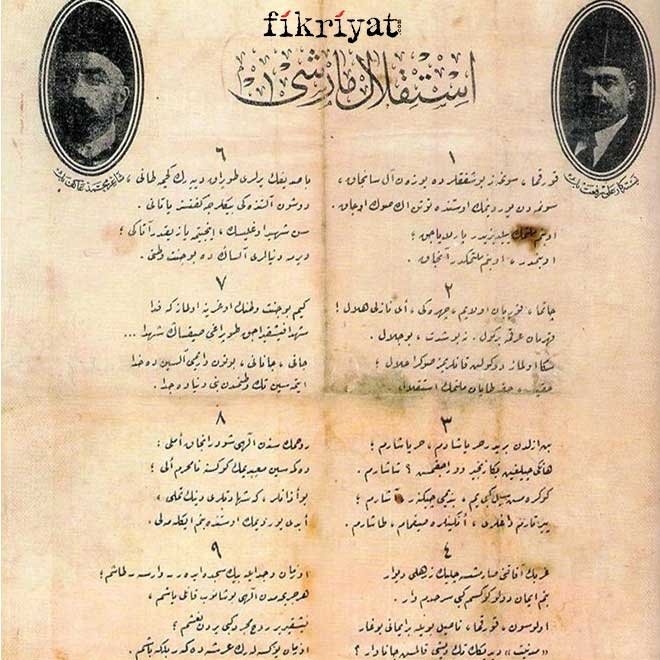 fikriyat
استقلال مارشى
١
قورقما، سونمز بو شفقلرده يوزن آل سانجاق،
سونمه‌دن يورديمك اوستنده توتن اك صوك اوجاق.
او بنم ملتمك ييلديزيدر پارلاياجق؛
او بنمدر، او بنم ملتمكدر آنجاق.
٢
چاتما، قوربان اولايم، چهره‌كى، اى نازلى هلال!
قهرمان عرقمه بر كول. نه بو شدت، بو جلال.
سكا اولماز دوكولن قانلريمز صوكرا حلال؛
حقيدر، حقه طاپان ملتمك استقلال.
٣
بن ازلدن بريدر حر ياشادم، حر ياشارم؛
هانكى چيلغين بكا زنجير ووراجقمش؟ شاشارم.
كوكره‌مش سيل كبى يم، بنديمى چيكنر، آشارم؛
ييرتارم داغلرى، انكينلره صيغمام، طاشارم.
٤
غربك آفاقنى صارمشسه چليك زرهلى ديوار
بنم ايمان دولو كوكسم كبى سرحدم وار.
اولوسون، قورقما، ناصيل بويله بر ايمانى بوغار
«مدنيت» ديديكك تك ديشى قالمش جاناوار؟
٦
باصديغك يرلرى طوپراق دييه‌رك كچمه طانى،
دوشون آلتنده‌كى بيكلرجه كفنسز ياتانى.
سن شهيد اوغليسك، اينجيتمه يازيقدر آتاكى؛
ويرمه دنيالرى آلساڭ ده بو جنت وطنى.
٧
كيم بو جنت وطنك اوغرينه اولماز كه فدا
شهدا فيشقيراجق طوپراغى صيقساڭ شهدا...
جانى، جانانى، بوتون واريمى آلسين ده خدا
ايتمه‌سين تك وطنمدن بنى دنياده جدا.
٨
روحمك سندن الهى شودر آنجاق املى:
ده‌كمه‌سين معبديمك كوكسنه نامحرم ألى؛
بو اذانلر، كه شهادتلرى دينك تملى،
ابدى يورديمك اوستنده بنم ايكله‌ملى.
٩
او زمان وجد ايله بيك سجده ايدر - وارسه - طاشم؛
هر جريحه‌مدن الهى بوشانوب قانلى ياشم،
فيشقيرير روح مجرد كبى يردن نعشم؛
او زمان يوكسه‌له‌رك عرشه ده‌كر بلكه باشم.